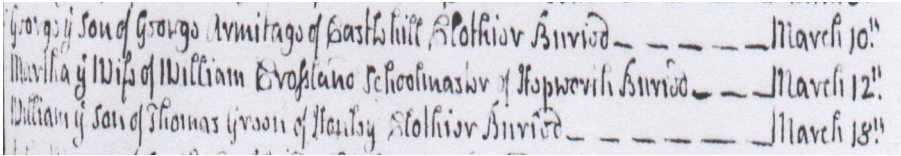 George yͤ Son of George Armitage of Casthill Clothier Buried – – – – – March 10th.
Martha yͤ Wife of William Crosland Schoolmaster of Hepworth Buried – – – March 12th.
William yͤ Son of Thomas Green of Honley Clothier Buried – – – – – – March 18th.